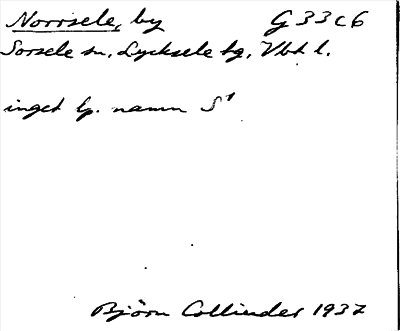 Norrsele, by G 33 c 6
Sorsele sn, Lycksele tg, Vbt l.
inget lp. namn S¹
Björn Collinder 1937